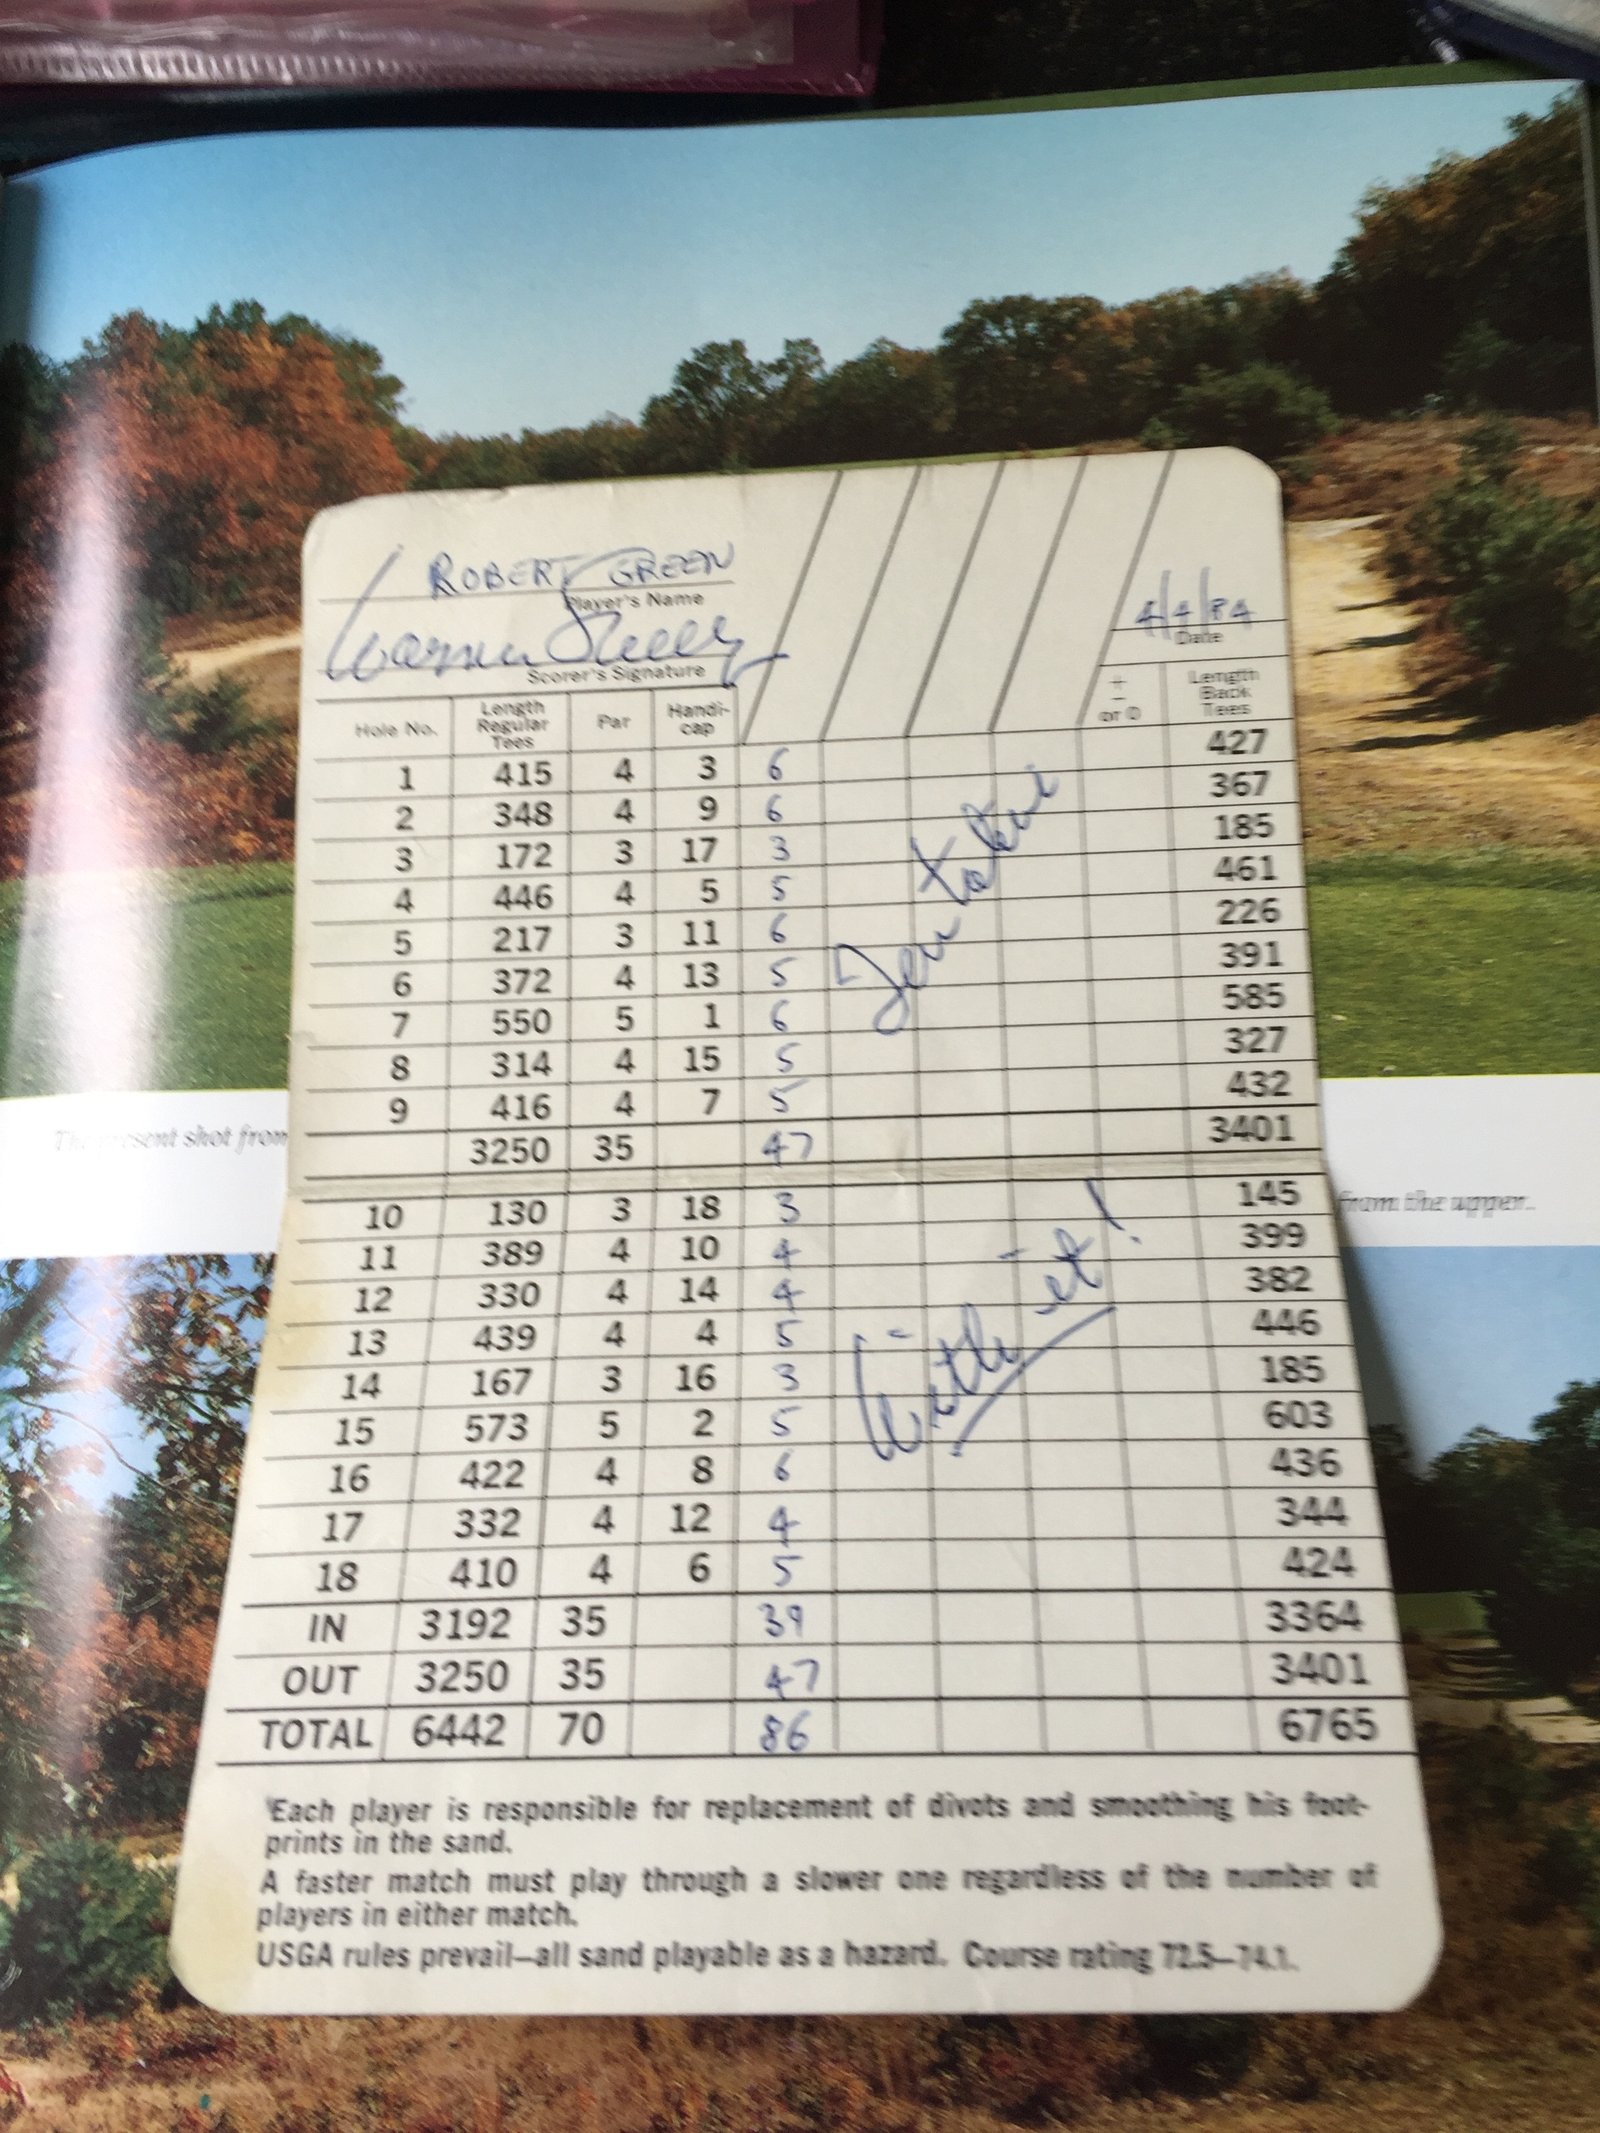 ROBERT GREEN
Player's Name
Scorer's Signature
4/4/84
Date
Hole No. Length Regular Tees Par Handi-cap + - or 0 Length Back Tees
1 415 4 3 6 427
2 348 4 9 6 367
3 172 3 17 3 185
4 446 4 5 5 461
5 217 3 11 6 226
6 372 4 13 5 391
7 550 5 1 6 585
8 314 4 15 5 327
9 416 4 7 5 432
3250 35 47 3401
10 130 3 18 3 145
11 389 4 10 4 399
12 330 4 14 4 382
13 439 4 4 5 446
14 167 3 16 3 185
15 573 5 2 5 603
16 422 4 8 6 436
17 332 4 12 4 344
18 410 4 6 5 424
IN 3192 35 39 3364
OUT 3250 35 47 3401
TOTAL 6442 70 86 6765
Each player is responsible for replacement of divots and smoothing his foot-
prints in the sand.
A faster match must play through a slower one regardless of the number of
players in either match.
USGA rules prevail—all sand playable as a hazard. Course rating 72.5—74.1.
shot from
from the upper.